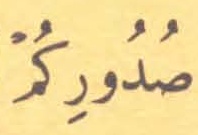 صُدُورِكُمْ